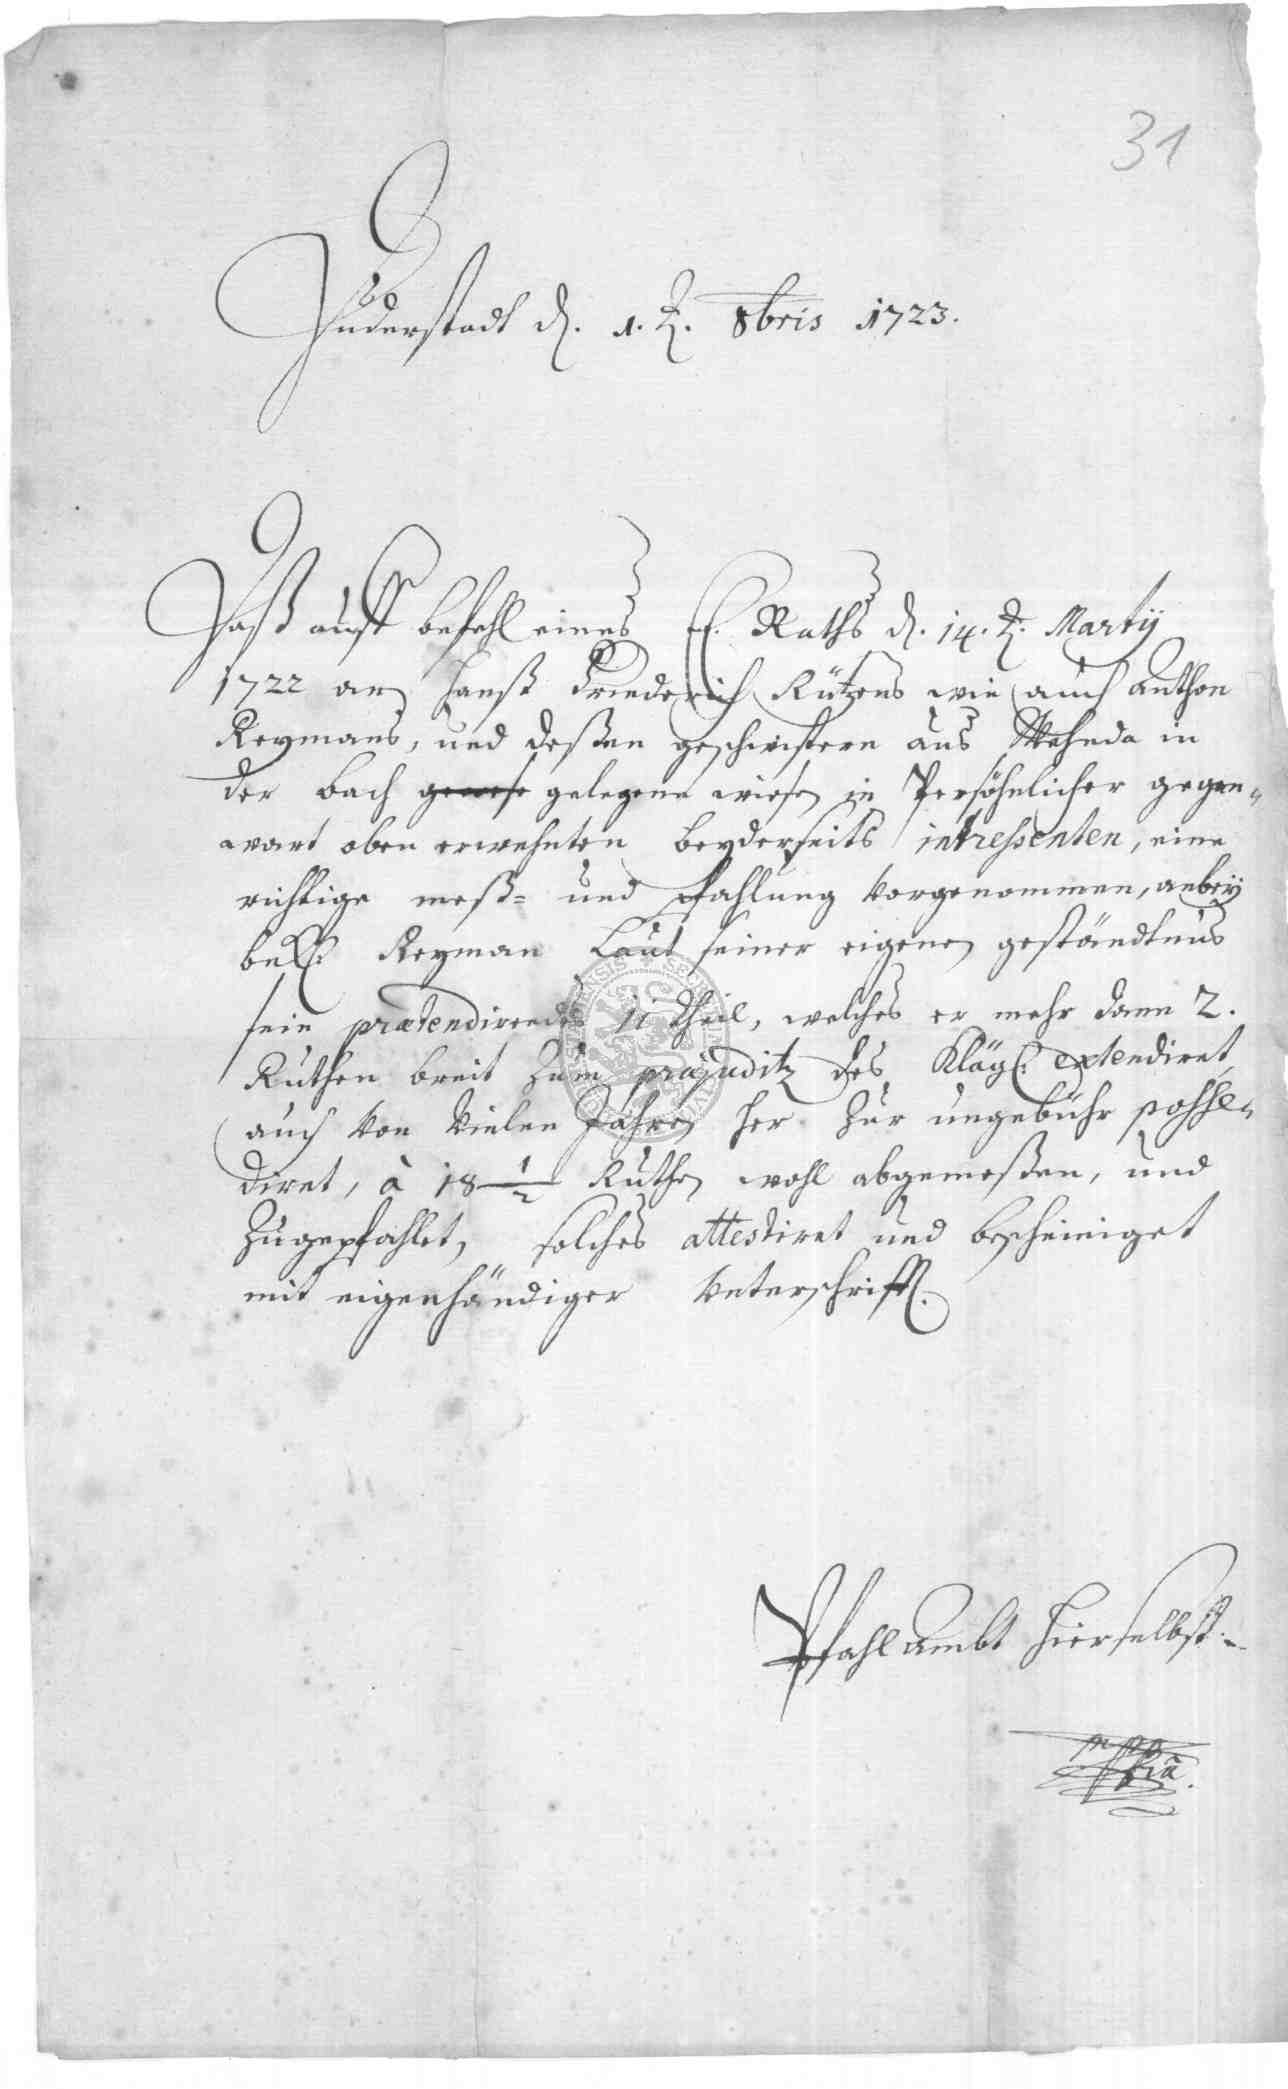 31
Duderstadt d. 1. t. 8bris 1723.
Daß auff befehl eines E. Raths d. 14. t. Martij
1722 an Hanß Friederich Kützens wie auch Anthon
Reymans, und deßen geschwistern aus Wehnda in
der bach gewese gelegene wiese in Persöhnlicher gegen=
wart oben erwehnten beyderseits intressenten, eine
richtige meß= und Pfahlung vorgenommen, anbey
bekl: Reyman Laut seiner eigenen geständtnus
sein prætendirendes 11 theil, welches er mehr dann 2.
Ruthen breit zum præjuditz des Kläg: extendiret,
auch von vielen Jahren her zur ungebühr posse=
diret, à 18 1/2 Ruthen wohl abgemeßen, und
zugepfahlet, solches attestiret und bescheiniget
mit eigenhändiger Unterschrifft.
Pfahlambt hierselbst.